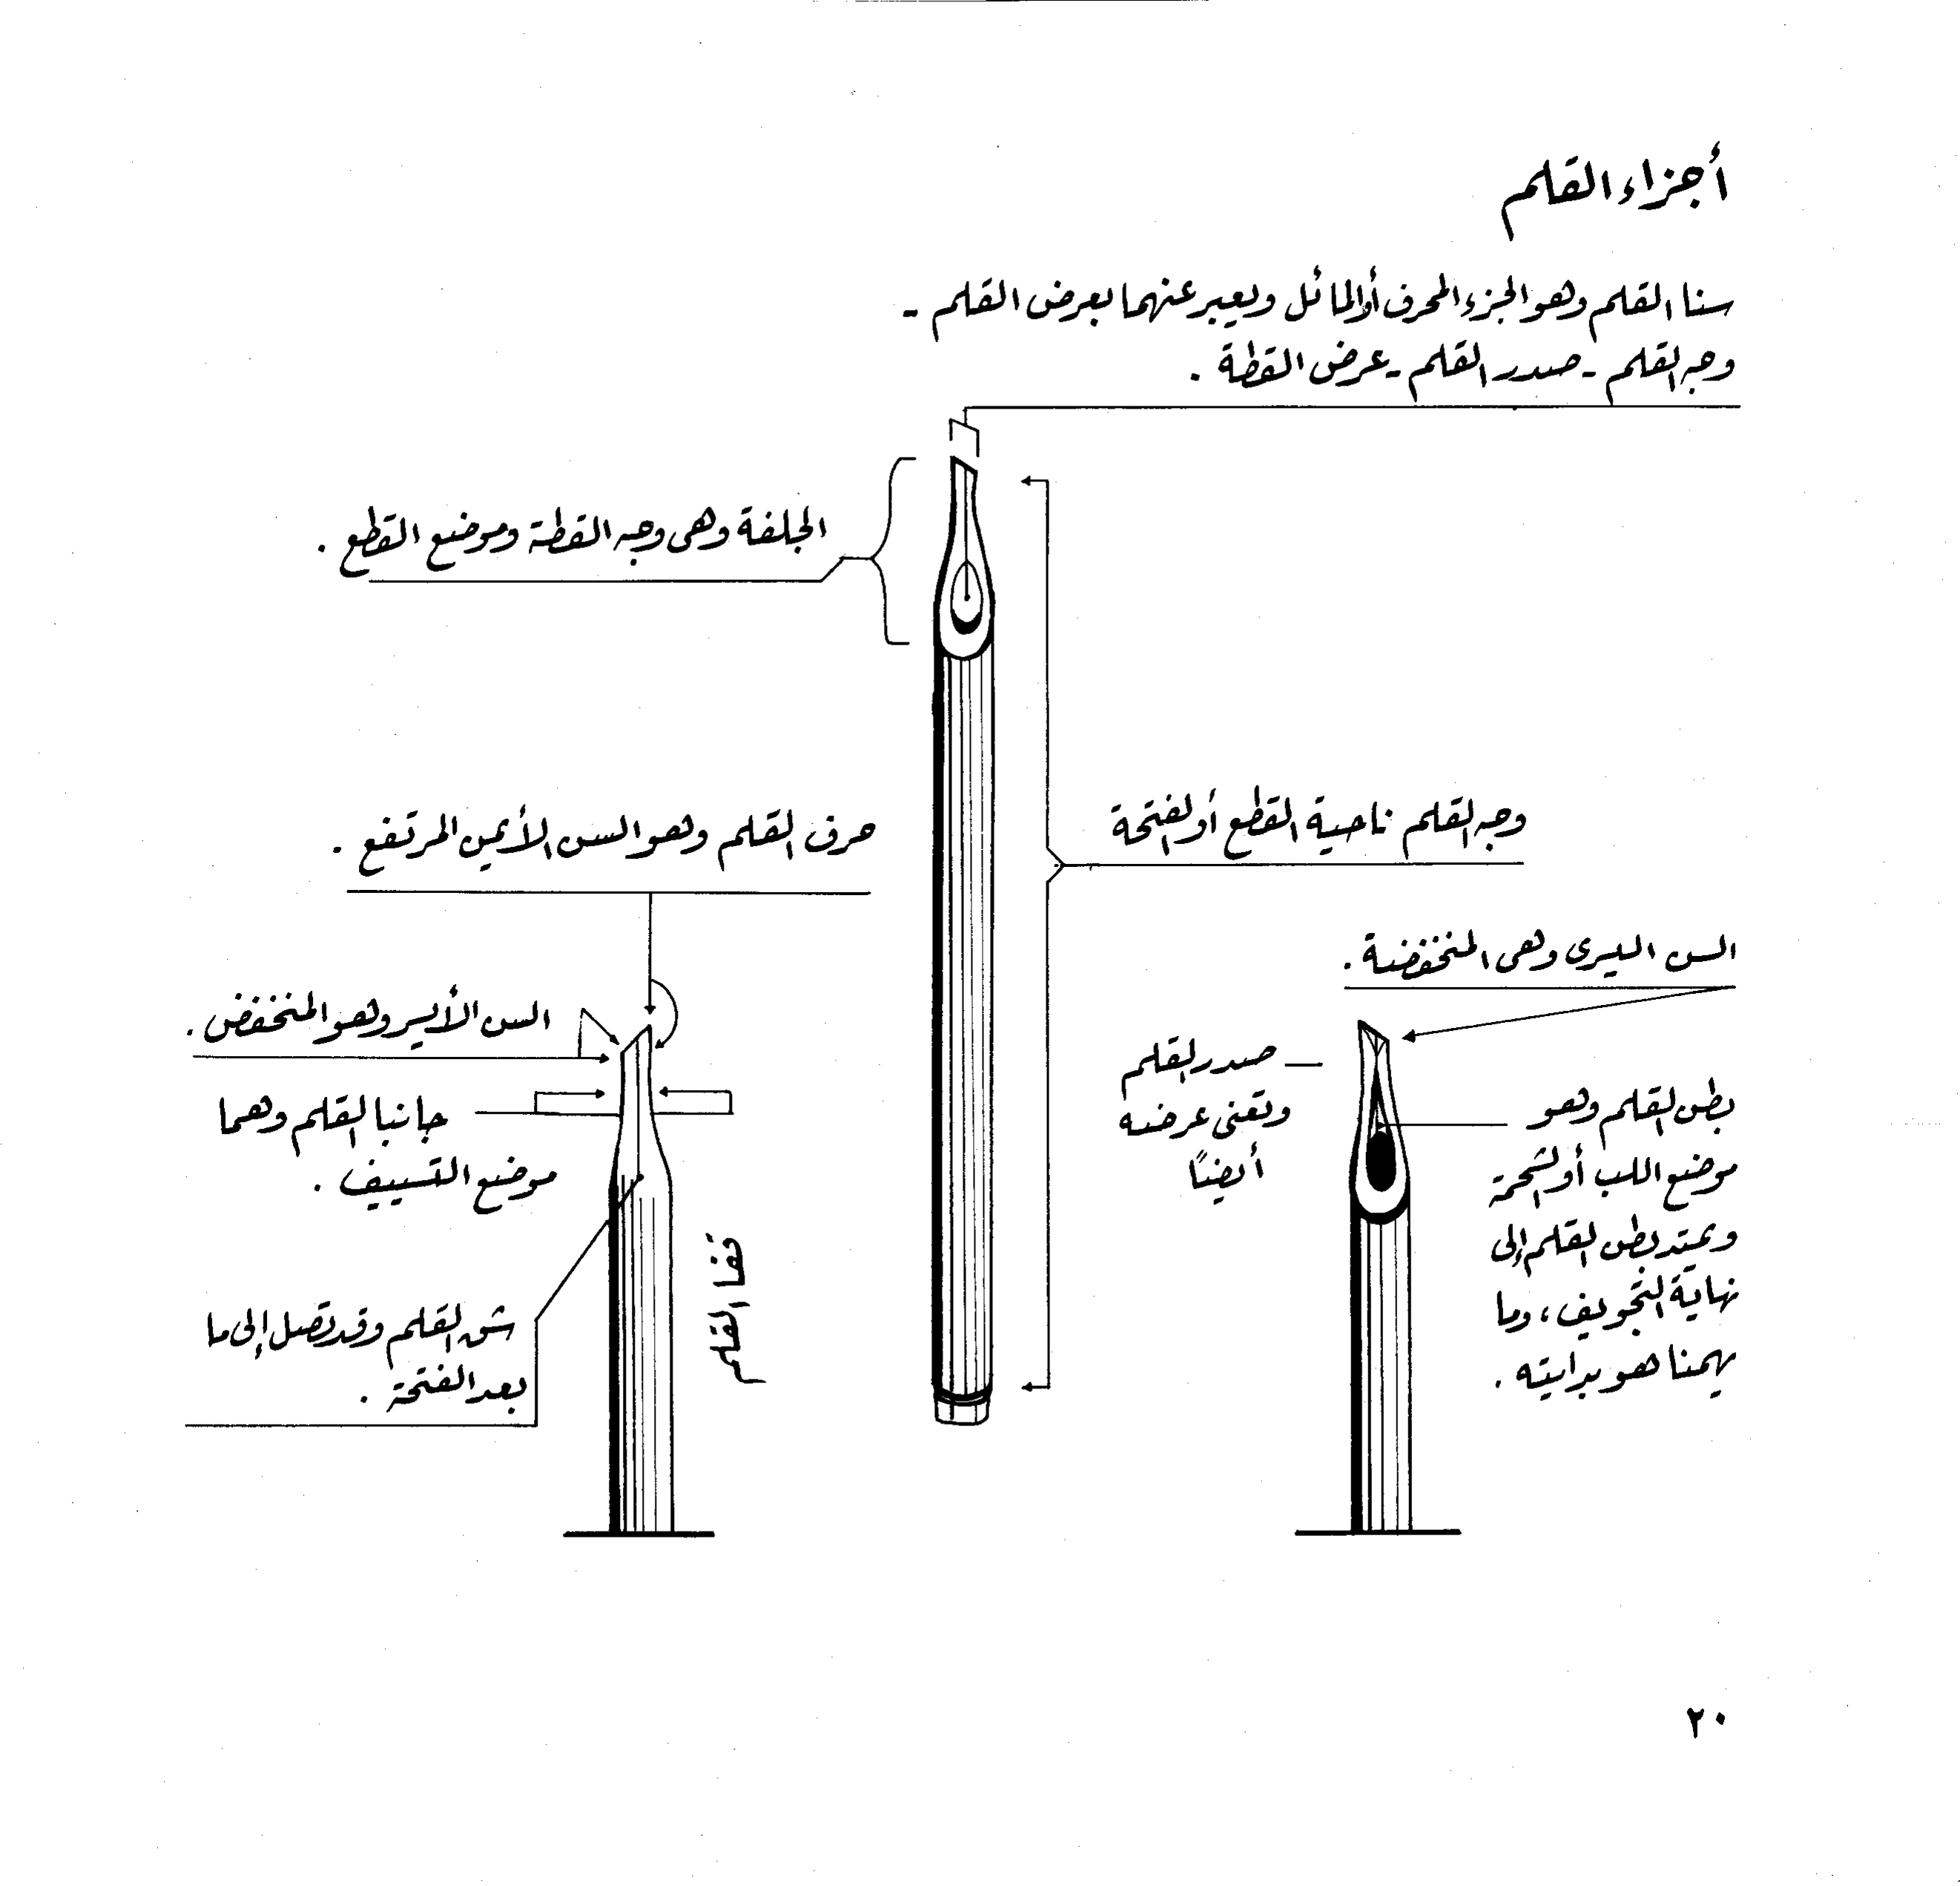 أجزاء القلم
سنا القلم وهو الجزء المحرف أو المائل ويعبر عنهما بعرض القلم -
وجه القلم - صدر القلم - عرض القطة .
الجلفة وهى وجه القطة وموضع القطع .
وجه القلم ناحية القطع أو الفتحة
حرف القلم وهو السن الأيمن المرتفع .
السن اليسرى وهى المنخفضة .
السن الأيسر وهو المنخفض .
صدر القلم
وتعنى عرضه
أيضاً
بطن القلم وهو
موضع اللب أو الشحمة
ويمتد بطن القلم إلى
نهاية التجويف ، وما
يهمنا هو بدايته .
جانبا القلم وهما
موضع التسييف .
قفا القلم
شق القلم وقد تصل إلى ما
بعد الفتحة .
٢٠